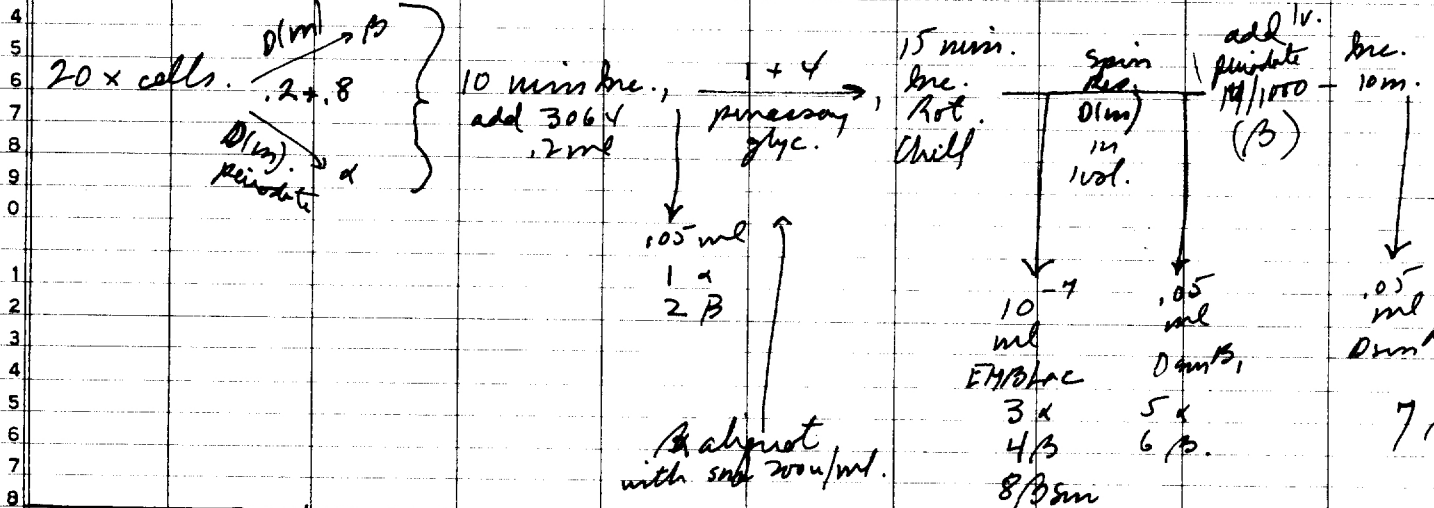 4
5
6
7
8
9
0
1
2
3
4
5
6
7
8
20 x cells.
D(m) β
.2+.8
D(m).
periodate α
10 min Inc.,
add 3064
.2 ml
.05 ml
1 α
2 β
1 + 4
glyc.
aliquot
with sm 200u/ml.
15 min.
Inc.
Rot.
Chill
Spin
Res.
D(m)
in
1 vol.
10⁻⁷
ml
EMBLac
3 α
4 β
8 β sm
.05
ml
Dsm B,
5 α
6 β.
add 1v.
periodate
M/1000
(β)
Inc.
10 m.
.05
ml
Dsm
7,